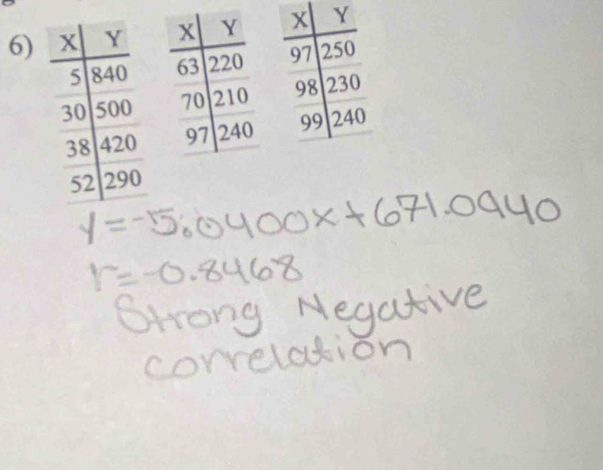 6) X Y X Y X Y
5 840 63 220 97 250
30 500 70 210 98 230
38 420 97 240 99 240
52 290
y=-5.0400x+671.0940
r=-0.8468
Strong Negative
correlation